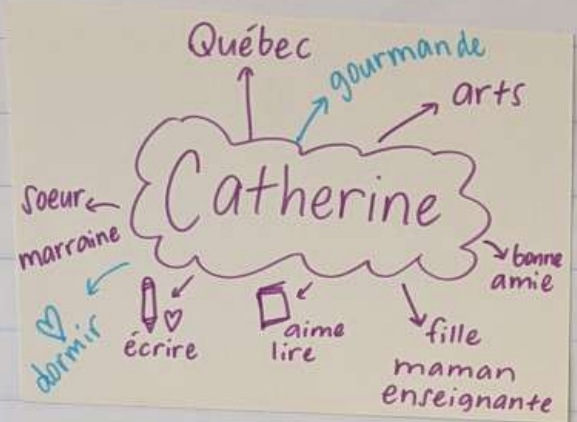 Québec
gourmande
arts
Catherine
soeur
marraine
bonne
amie
dormir
écrire
aime
lire
fille
maman
enseignante